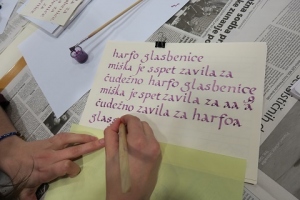 harfo glasbenice
miška je sspet zavila za
čudežno harfo glasbenice
miška je spet zavila za aa a
čudežno zavila za harfoa
glas